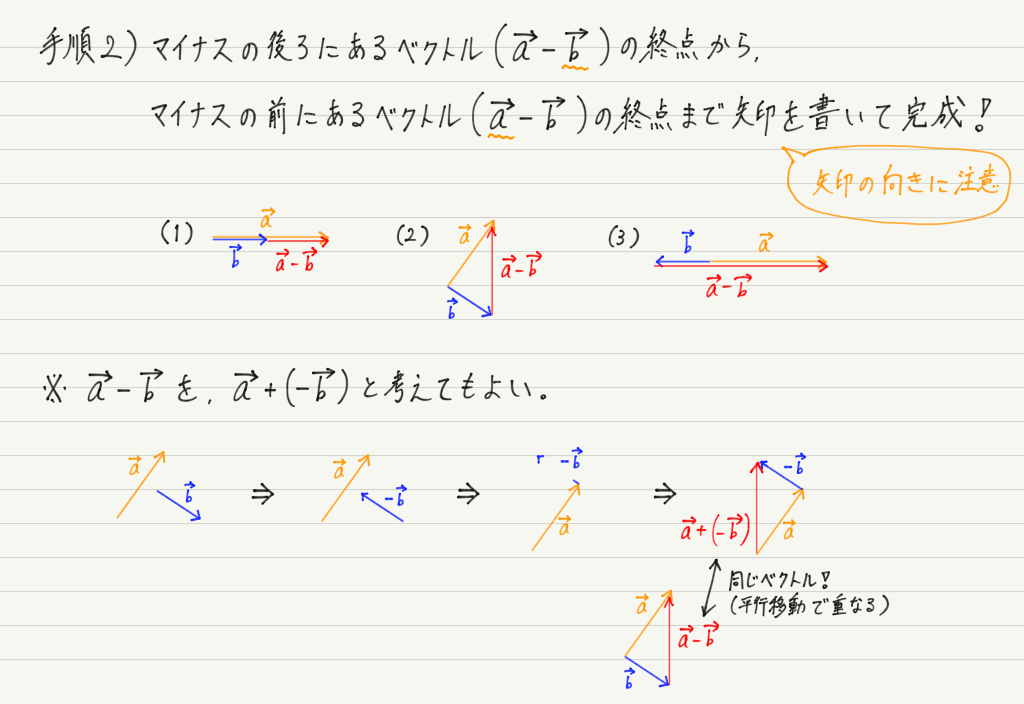 手順2) マイナスの後ろにあるベクトル(a→ - b→)の終点から,
マイナスの前にあるベクトル(a→ - b→)の終点まで矢印を書いて完成!
矢印の向きに注意
(1) a→ b→ a→-b→
(2) a→ a→-b→ b→
(3) b→ a→ a→-b→
※ a→-b→ を, a→+(-b→)と考えてもよい。
a→ b→ ⇒ a→ -b→ ⇒ -b→ a→ ⇒ -b→ a→+(-b→) a→
同じベクトル!
(平行移動で重なる)
a→ a→-b→
b→